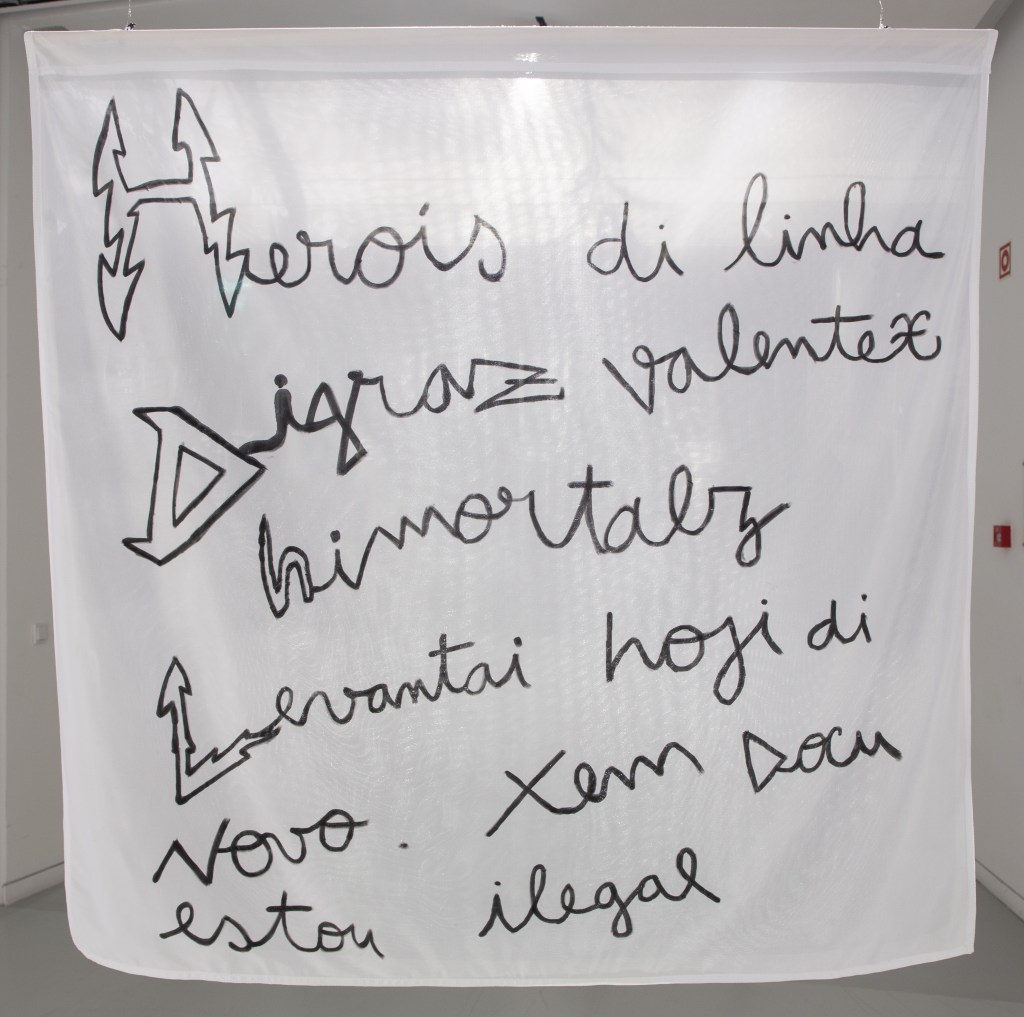 Herois di linha
Digraz valentex
himortalz
Levantai hoji di
Novo. Xem Docu
estou ilegal